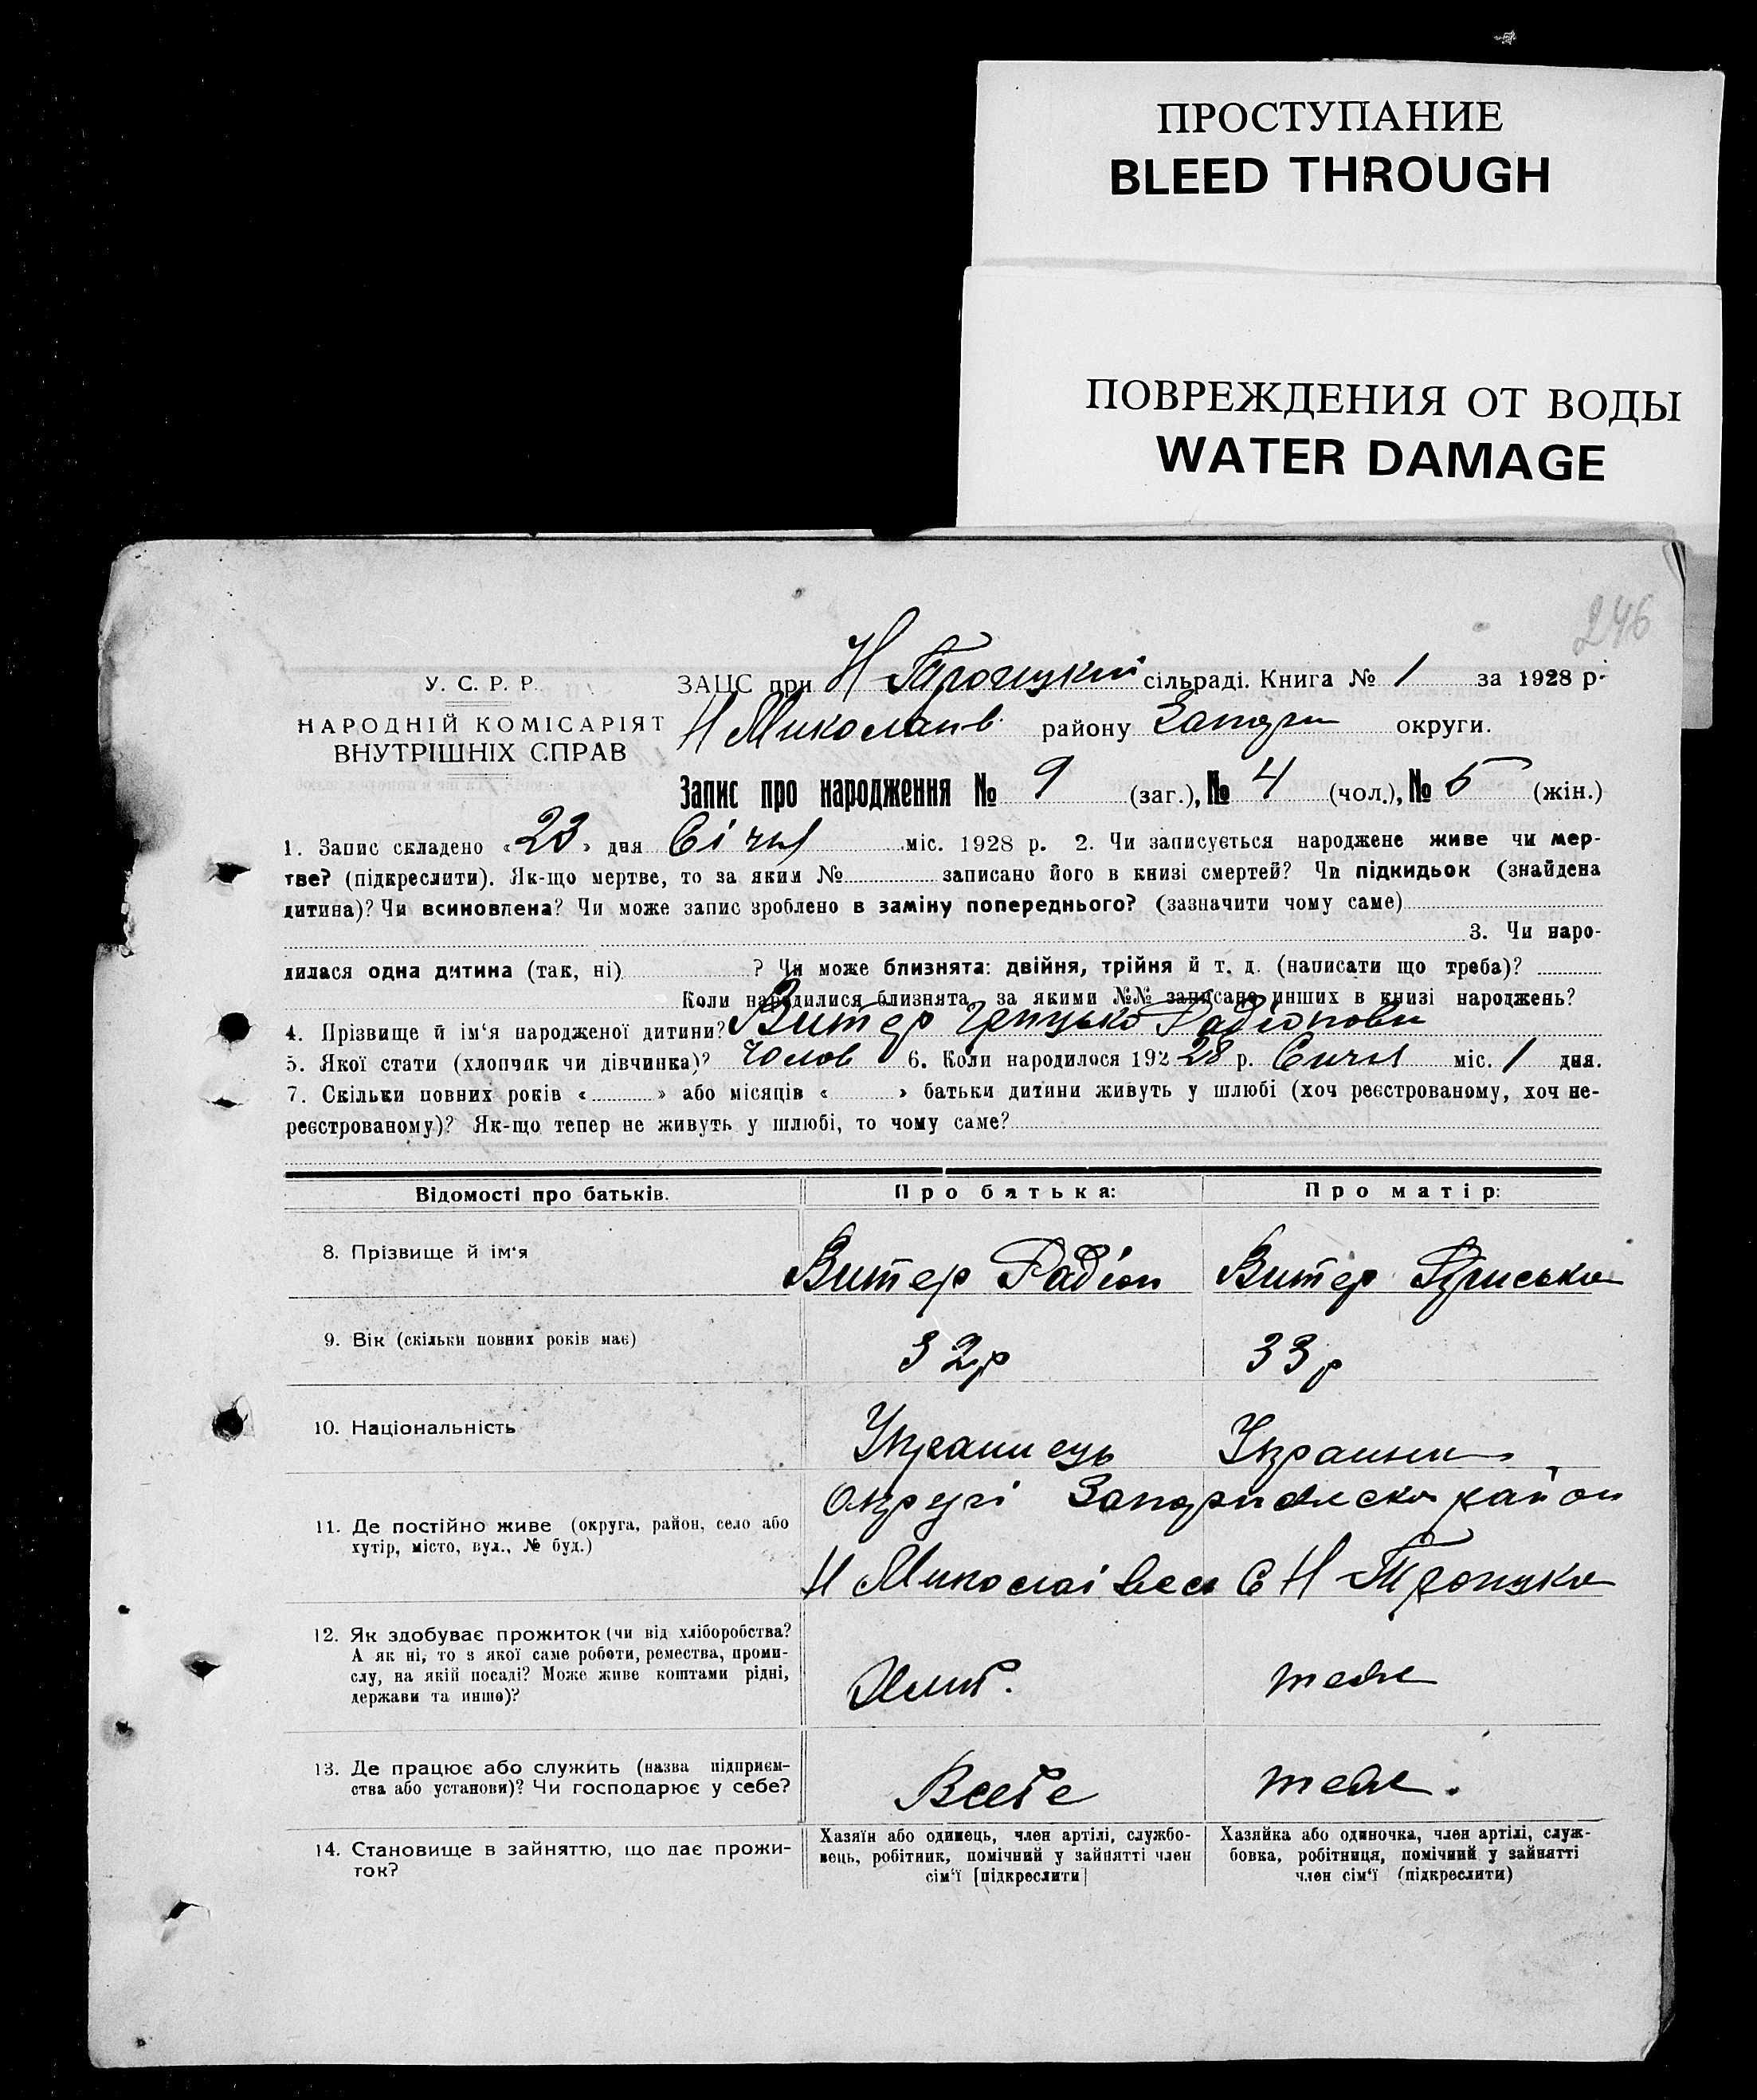 ПРОСТУПАНИЕ
BLEED THROUGH
ПОВРЕЖДЕНИЯ ОТ ВОДЫ
WATER DAMAGE
246
У. С. Р. Р.
НАРОДНІЙ КОМІСАРІЯТ
ВНУТРІШНІХ СПРАВ
ЗАЦС при Н Троицкій сільраді. Книга № 1 за 1928 р.
Н Миколаив району Запори округи.
Запис про народження № 9 (заг.), № 4 (чол.), № 5 (жін.)
1. Запис складено «23» дня Січня міс. 1928 р. 2. Чи записується народжене живе чи мер-
тве? (підкреслити). Як-що мертве, то за яким № записано його в книзі смертей? Чи підкидьок (знайдена
дитина)? Чи всиновлена? Чи може запис зроблено в заміну попереднього? (зазначити чому саме)
3. Чи наро-
дилася одна дитина (так, ні) ? Чи може близнята: двійня, трійня й т. д. (написати що треба)?
Коли народилися близнята, за якими №№ записано инших в книзі народжень?
4. Прізвище й ім‘я народженої дитини? Витер Грицько Радіонови
5. Якої стати (хлопчик чи дівчинка)? Чолов 6. Коли народилося 192 28 р. Сичня міс. 1 дня.
7. Скільки повних років « » або місяців « » батьки дитини живуть у шлюбі (хоч реєстрованому, хоч не-
реєстрованому)? Як-що тепер не живуть у шлюбі, то чому саме?
Відомості про батьків. Про батька: Про матір:
8. Прізвище й ім‘я Витер Радіон Витер Приська
9. Вік (скільки повних років має) 32р 33р
10. Національність Украинець Украинка
11. Де постійно живе (округа, район, село або
хутір, місто, вул., № буд.)
Округі район
Н С Н Троицка
12. Як здобуває прожиток (чи від хліборобства?
А як ні, то з якої саме роботи, ремества, проми-
слу, на якій посаді? Може живе коштами рідні,
держави та инше)?
Хлиб. теже
13. Де працює або служить (назва підприєм-
ства або установи)? Чи господарює у себе?
Всебе теже.
14. Становище в зайняттю, що дає прожи-
ток?
Хазяїн або одинець, член артілі, службо-
вець, робітник, помічний у зайнятті член
сім‘ї [підкреслити]
Хазяйка або одиночка, член артілі, служ-
бовка, робітниця, помічний у зайнятті
член сім‘ї (підкреслити)